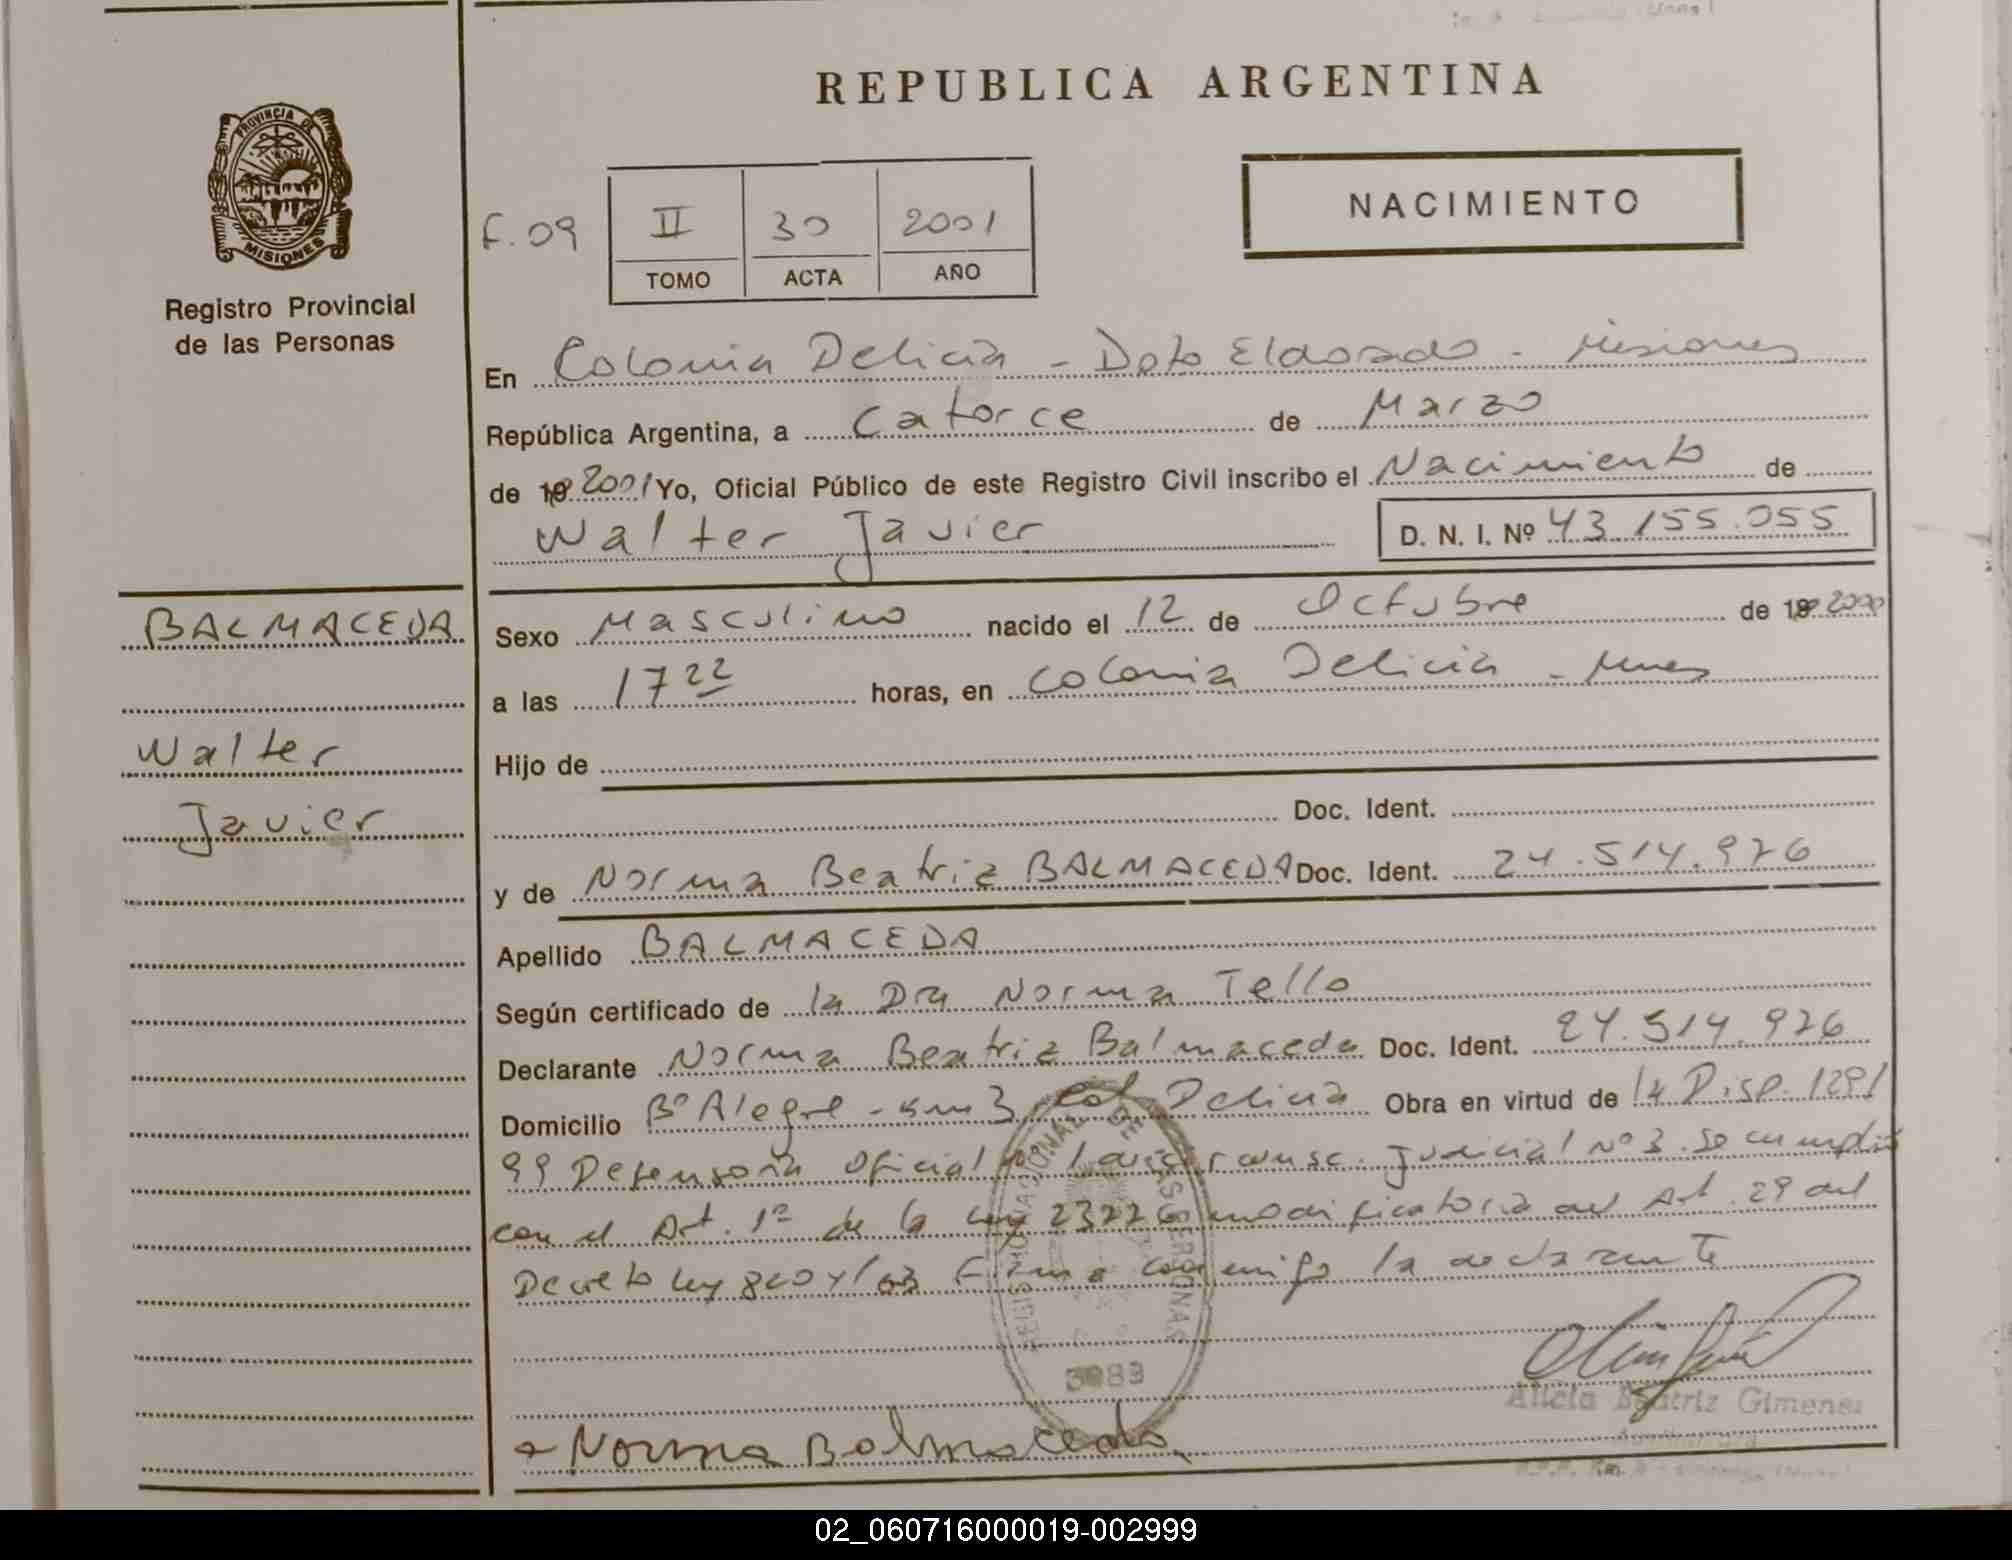 REPUBLICA ARGENTINA
PROVINCIA DE
MISIONES
Registro Provincial
de las Personas
F. 09
II 30 2001
TOMO ACTA AÑO
NACIMIENTO
En Colonia Delicia - Dpto Eldorado - Misiones
República Argentina, a Catorce de Marzo
de 19 2001 Yo, Oficial Público de este Registro Civil inscribo el Nacimiento de
Walter Javier D. N. I. Nº 43.155.055
BALMACEDA
Walter
Javier
Sexo Masculino nacido el 12 de Octubre de 19 2000
a las 17 22 horas, en Colonia Delicia - Mnes
Hijo de
Doc. Ident.
y de Norma Beatriz BALMACEDA Doc. Ident. 24.514.926
Apellido BALMACEDA
Según certificado de la Dra Norma Tello
Declarante Norma Beatriz Balmaceda Doc. Ident. 24.514.926
Domicilio Bº Alegre - Km 3 Col Delicia Obra en virtud de la Disp. 1291
99 Defensoria Oficial Judicial Nº 3. Se cumplió
con el Art. 1º de la Ley 23226 modificatoria del Art. 29 del
Decreto Ley 8204/63 Firma conmigo la declarante
DE LAS PERSONAS
3083
Alicia Beatriz Gimenez
Norma Balmaceda
02_060716000019-002999